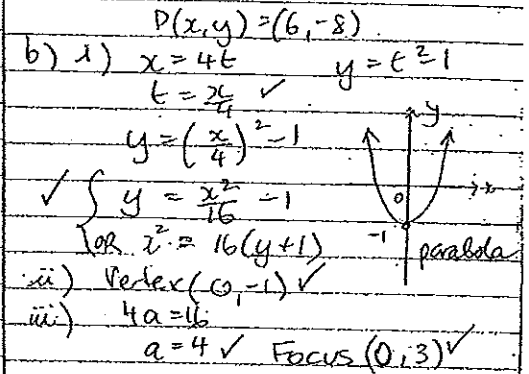 P(x,y) = (6,-8).
b) i) x = 4t y = t² - 1
t = x/4 ✓
y = (x/4)² - 1
✓ { y = x²/16 - 1
OR x² = 16(y+1)
y
x
0
-1
parabola
ii) Vertex (0,-1) ✓
iii) 4a = 16
a = 4 ✓ Focus (0,3) ✓